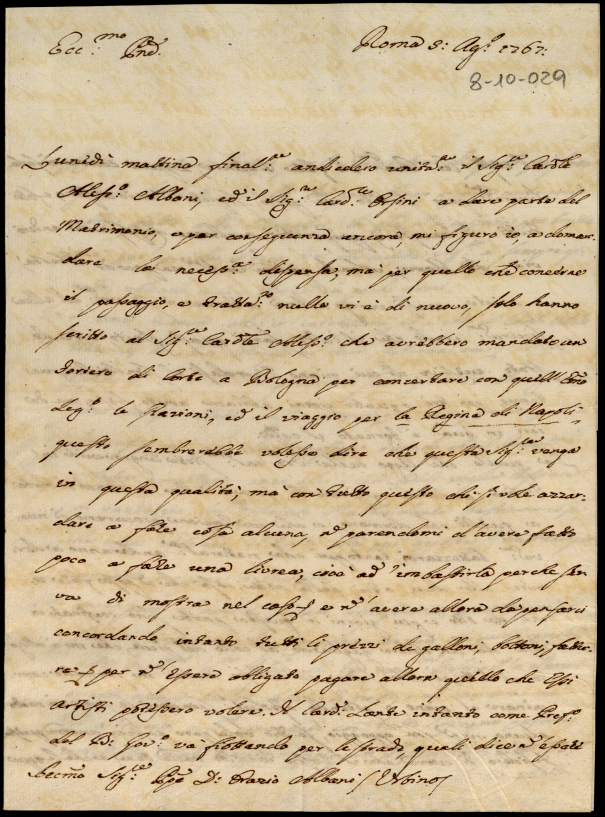 Ecc:mo Pnē. Roma 8: Ag:o 1767:
8-10-029
Lunedì mattina final:te andiedero unita:te il Sig:re Cardle
Aless:o Albani, ed il Sig:re Card:le Orsini a dare parte del
Matrimonio, e per conseguenza ancora, mi figuro io, a doman-
dare la necess:a dispensa; mà per quello che concerne
il passaggio, e tratta:to nulla vi è di nuovo, solo hanno
scritto al Sig:re Cardle Aless:o che avrebbero mandato un
foriero di Corte a Bologna per concertare con quell'
Leg:o le stazioni, ed il viaggio per la Regina di Napoli,
questo sembrerebbe volesse dire che questa Sig:ra venga
in questa qualità; mà con tutto questo chi si vole azzar-
dare a fare cosa alcuna, parendomi d'avere fatto
poco a fare una livrea, cioè ad' imbastirla perche ser-
va di mostra nel caso e avere allora da pensarci
concordando intanto tutti li prezzi di galloni, bottoni, fattu-
re per essere obligato pagare allora quello che Essi
artisti potessero volere. Il Card: Lante intanto come Pref:o
del Gov:o và frottando per le strade, quali dice
Sig:re Ppe D: Orazio Albani / Urbino /